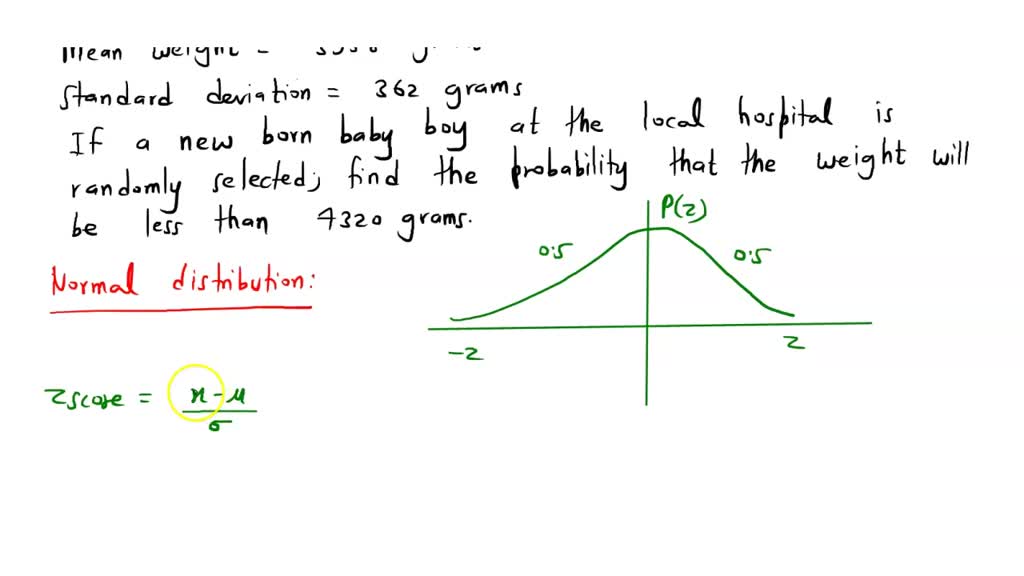 mean weight =
standard deviation = 362 grams
If a new born baby boy at the local hospital is
randomly selected; find the probability that the weight will
be less than 4320 grams.
P(z)
0.5 0.5
Normal distribution:
-z z
z score = x - μ
σ